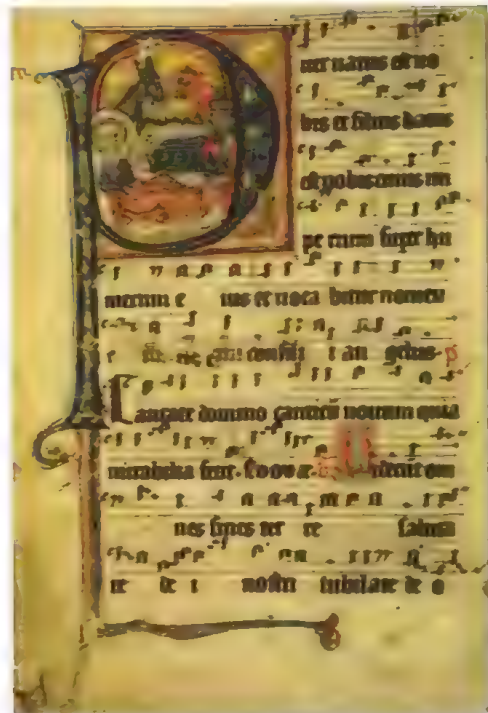 P uer natus est no
bis et filius datus
est nobis cuius im
pe rium super hu
merum e ius et voca bitur nomen
e consili i an gelus p
Cantate domino canticum novum quia
mirabilia fecit. Viderunt om
nes fines ter re saluta
re de i nostri iubilate de o